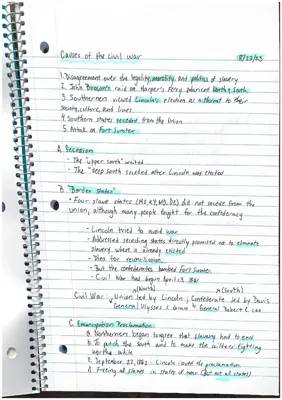 Causes of the civil war 8/23/23
1. Disagreement over the legality, morality, and politics of slavery
2. John Brown's raid on Harper's Ferry polarized North & South
3. Southerners viewed Lincoln's election as a threat to their
society, culture, and lives
4. Southern states seceded from the Union
5. Attack on Fort Sumter
A. Secession
- The "upper south" waited
- The "Deep South seceded after Lincoln was elected
B. "Border states"
• Four slave states (MO, KY, MD, DE) did not secede from the
union, although many people fought for the confederacy
- Lincoln tried to avoid war
- Addressed seceding states directly promised not to eliminate
slavery where it already existed
- Plea for reconciliation
- But the confederates bombed Fort Sumter
- Civil War had begun April 13, 1861
(North) (South)
Civil War Union led by Lincoln; Confederate led by Davis
General Ulysses S. Grant General Robert E. Lee
C. Emancipation Proclamation
Northerners began to agree that slavery had to end
To punish the south and to make the soldiers fighting
worth while
September 22, 1862 - Lincoln issued the proclamation
Freeing all slaves in states of rebel (but not all states)